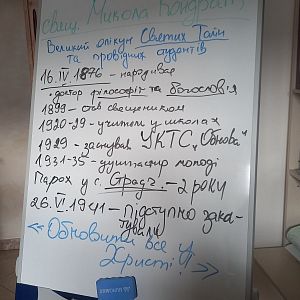 свящ. Микола Кондрат,
Великий опікун Святих Таїн
та провідник студентів
16.IV.1876 – народився
• доктор філософії та богослов'я
1899 – став священиком
1920-29 – учитель у школах
1929 – заснував УКТС „Обнова"
1931-35 – душпастир молоді
Парох у с. Градч. – 2 роки
26.VI.1941 – підступно зака-
тували
«Обновити все у
Христі!»